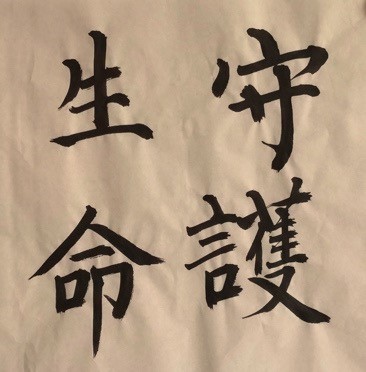 守護
生命